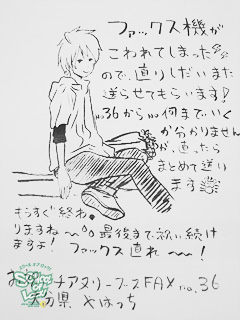 ファックス機が
こわれてしまった
ので、直りしだいまた
送らせてもらいます!
no.36からno.何までいく
か分かりません
が、直ったら
まとめて送い
ます
もうすぐ終わ
りますね〜 最後まで歌い続け
ますよ! ファックス直れ〜!
チアヌリーブスFAX no.36
大分県 やはっち